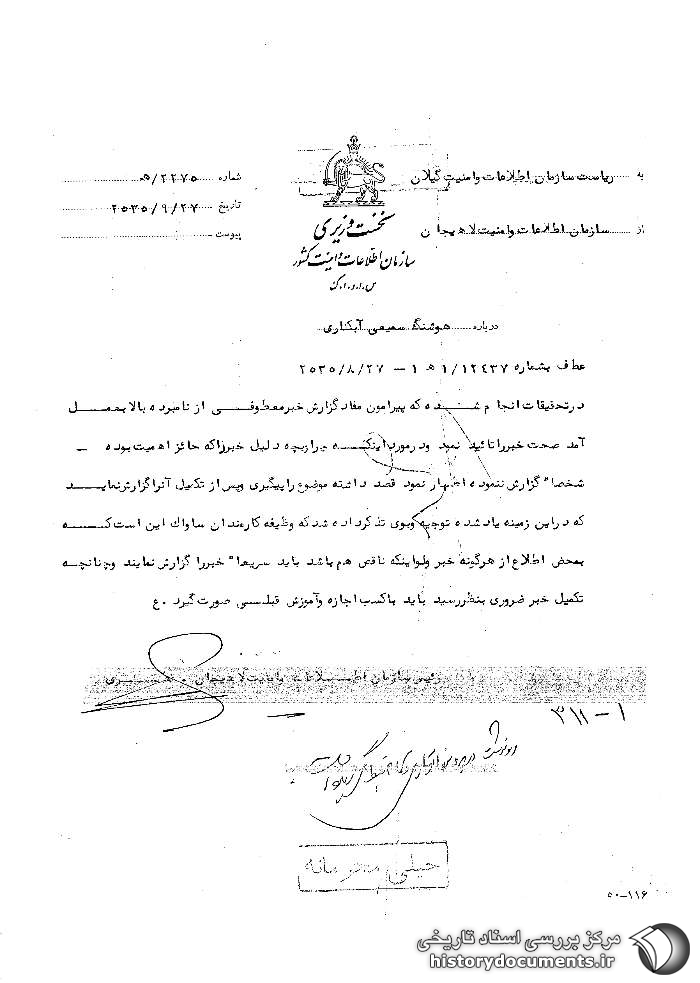 به ریاست سازمان اطلاعات وامنیت گیلان
شماره ۲۲۷۵/ه
از سازمان اطلاعات وامنیت لاهیجان
تاریخ ۲۵۳۵/۹/۲۷
پیوست
نخست وزیری
سازمان اطلاعات و امنیت کشور
س.ا.و.ا.ک
درباره هوشنگ سمیعی آبکناری
عطف بشماره ۱/۱۲۴۳۷ ه ۱ – ۲۵۳۵/۸/۲۷
درتحقیقات انجام شده که پیرامون مفاد گزارش خبر معطوفی از نامبرده بالا بعمل
آمد صحت خبررا تائید نمود ودرمورد اینکه چرا بچه دلیل خبرراکه حائز اهمیت بوده –
شخصا" گزارش ننموده اظهار نمود قصد داشته موضوع راپیگیری وپس از تکمیل آنرا گزارش نماید
که دراین زمینه یاد شده توجیه وبوی تذکر داده شد که وظیفه کارمندان ساواک این است که
بمحض اطلاع از هرگونه خبر ولواینکه ناقص هم باشد باید سریعا" خبررا گزارش نمایند وچنانچه
تکمیل خبر ضروری بنظررسید باید باکسب اجازه وآموزش قبلی صورت گیرد. ع
رئیس سازمان اطلاعات وامنیت لاهیجان
۳۱۱-۱
خیلی محرمانه
۵۰-۱۱۶
مرکز بررسی اسناد تاریخی
historydocuments.ir